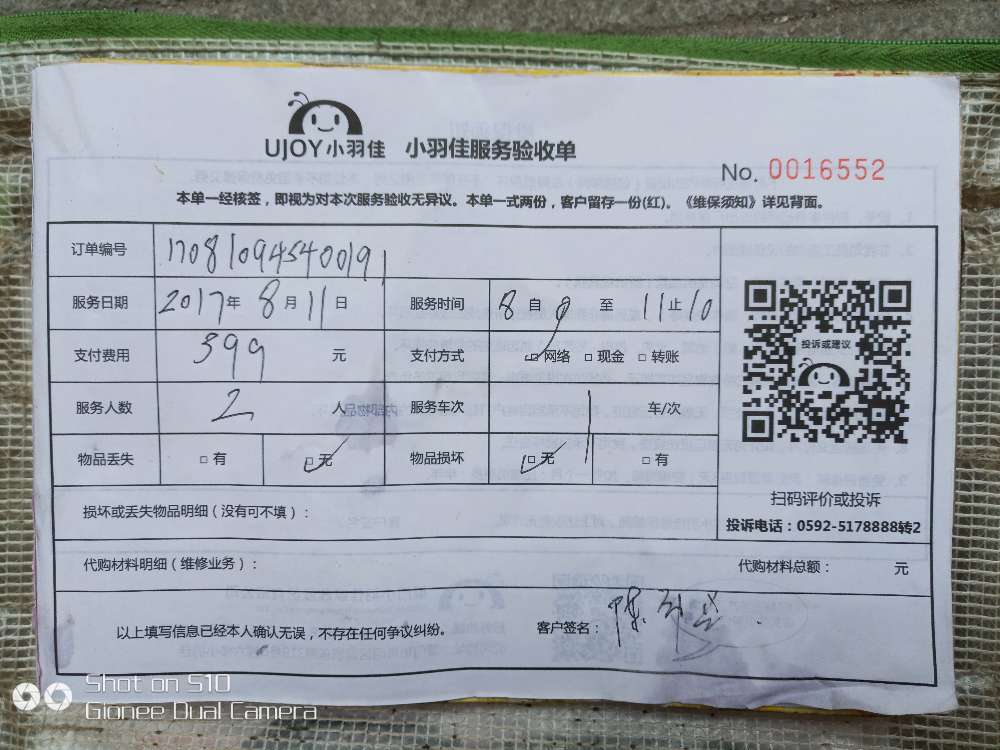 UJOY小羽佳 小羽佳服务验收单
No. 0016552
本单一经核签，即视为对本次服务验收无异议。本单一式两份，客户留存一份(红)。《维保须知》详见背面。
订单编号 170810945400191
服务日期 2017年 8月 11日 服务时间 8自 至 11止10
支付费用 399 元 支付方式 网络 现金 转账
投诉或建议
服务人数 2 人 服务车次 1 车/次
物品丢失 有 无 物品损坏 无 有
扫码评价或投诉
损坏或丢失物品明细（没有可不填）：
投诉电话：0592-5178888转2
代购材料明细（维修业务）： 代购材料总额： 元
以上填写信息已经本人确认无误，不存在任何争议纠纷。 客户签名：
Shot on S10
Gionee Dual Camera